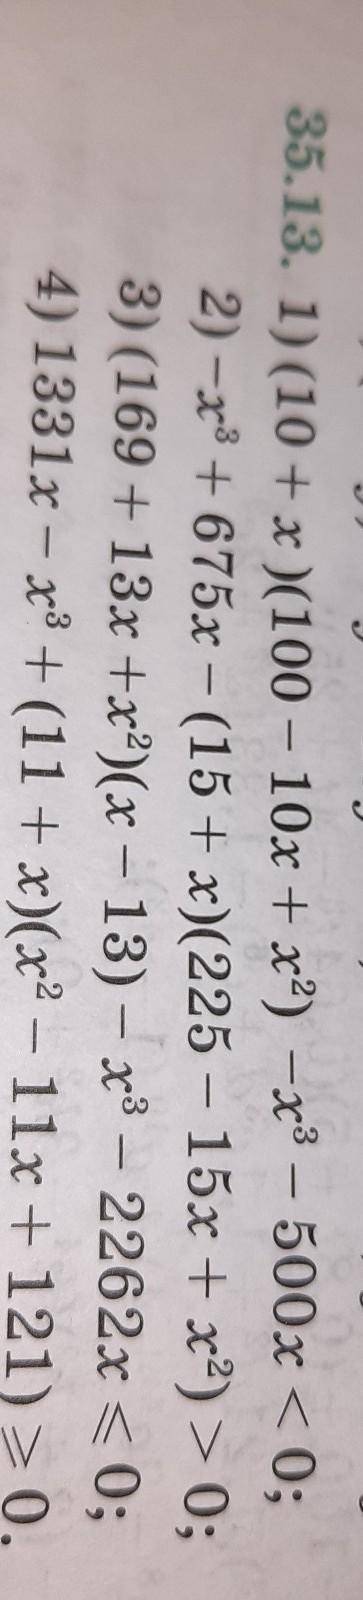 35.13. 1) (10 + x )(100 − 10x + x²) −x³ − 500x < 0;
2) −x³ + 675x − (15 + x)(225 − 15x + x²) > 0;
3) (169 + 13x +x²)(x − 13) − x³ − 2262x ⩽ 0;
4) 1331x − x³ + (11 + x)(x² − 11x + 121) ⩾ 0.